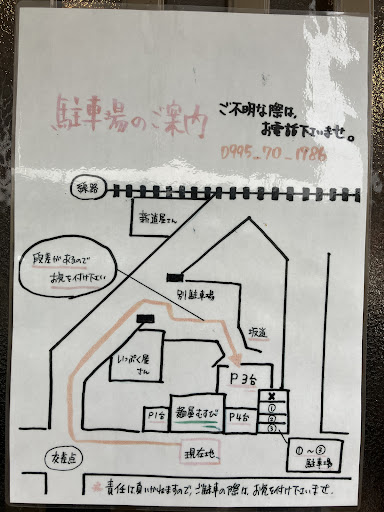 駐車場のご案内
ご不明な際は、
お電話下さいませ。
0995-70-1986
線路
新道屋さん
段差があるので
お気を付け下さい
別駐車場
坂道
いっぷく屋
さん
P3台
P1台
麺屋むすび
P4台
×
①
②
③
現在地
①〜③
駐車場
交差点
※責任は負いかねますので、ご駐車の際は、お気を付け下さいませ。